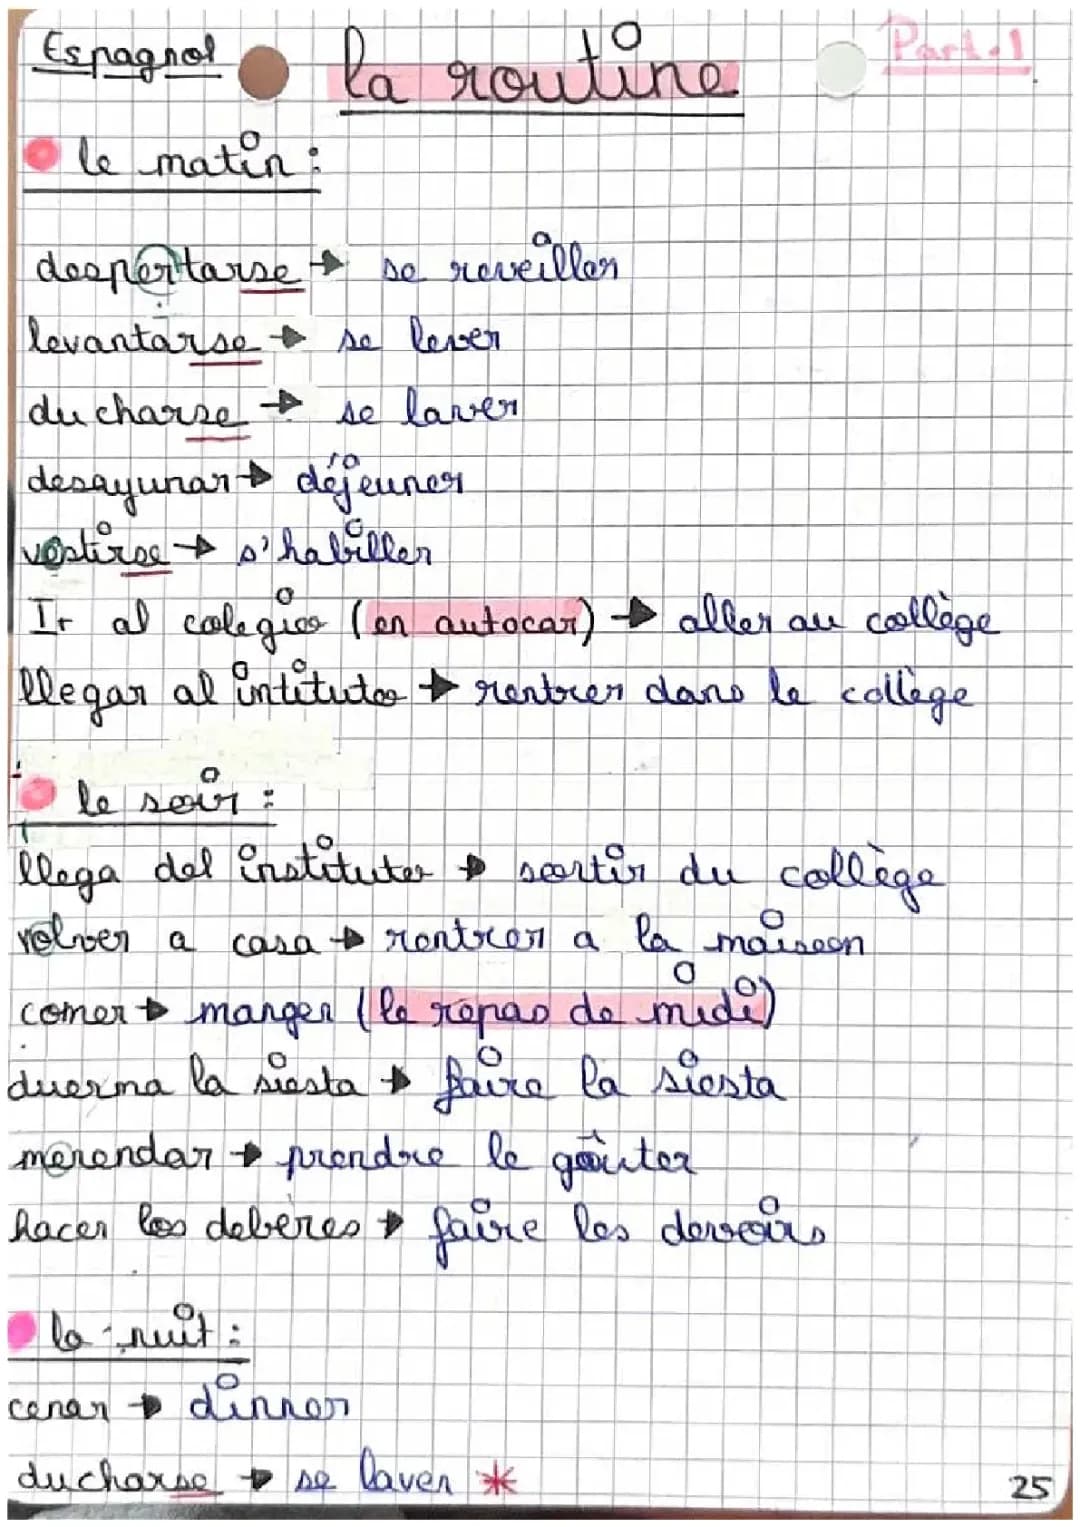 Espagnol la routine Part.1
le matin :
despertarse → se reveiller
levantarse → se lever
ducharse → se laver
desayunar → déjeuner
vestirse → s'habiller
Ir al colegio (en autocar) → aller au collège
llegar al intituto → rentrer dans le collège
le soir :
llega del instituto → sortir du collège
volver a casa → rentrer a la maison
comer → manger (le repas de midi)
duerma la siesta → faire la siesta
merendar → prendre le goûter
hacer los deberes → faire les devoirs
la nuit :
cenar → dinner
ducharse → se laver *
25